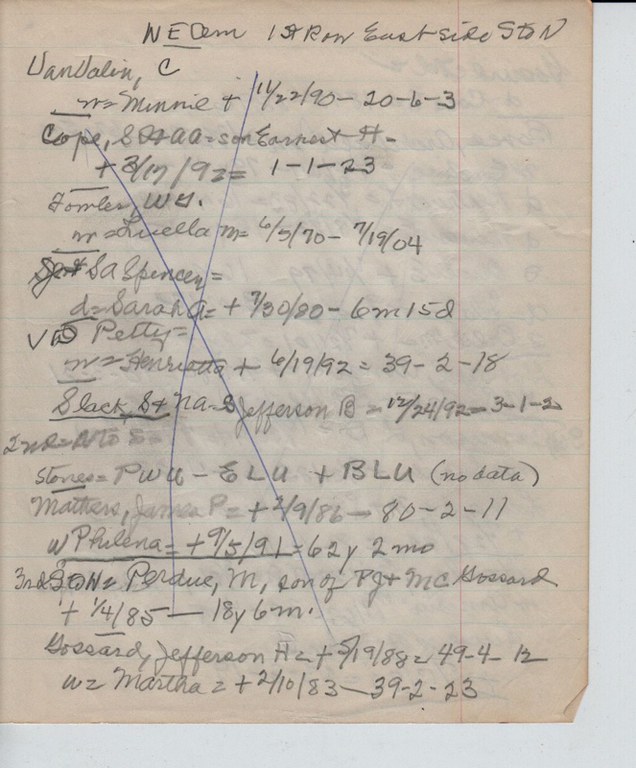 NE Cem 1st Row East side S to N
VanValin, C
w = Minnie + 11/22/90 - 20-6-3
Cope, S & AA = son Earnest H -
+ 3/17/92 = 1-1-23
Fowler, W
w = Luella M = 6/5/70 - 7/19/04
SA Spencer =
d = Sarah A = + 7/30/80 - 6m 15d
Petty =
w = Henrietta + 6/19/92 = 39-2-18
Slack, S + NA = S Jefferson B = 12/24/92 = 3-1-2
2nd = N to S =
Stones = PWU - ELU + BLU (no data)
Matters, James P = + 2/9/86 - 80-2-11
w Philena = + 9/5/91 = 62y 2mo
3rd S to N = Perdue, M, son of FJ + MC Gossard
+ 1/4/85 — 18y 6m.
Gossard, Jefferson H = + 5/19/88 = 49-4-12
w = Martha = + 2/10/83 - 39-2-23